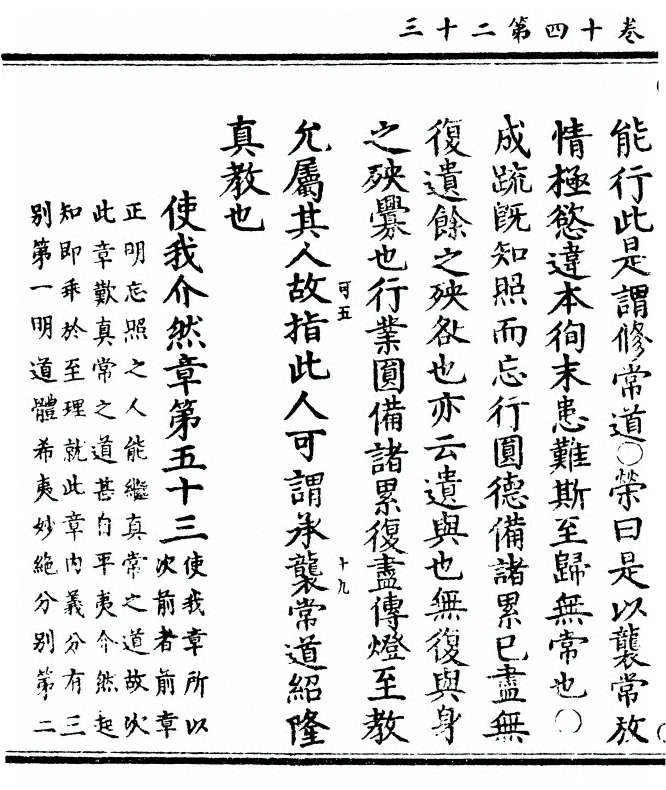 卷十四第二十三
能行此是謂修常道〇榮曰是以襲常放
情極慾違本徇末患難斯至歸無常也〇
成疏既知照而忘行圓德備諸累已盡無
復遺餘之殃咎也亦云遺與也無復與身
之殃釁也行業圓備諸累復盡傳燈至教
允屬其人故指此人可謂承襲常道紹隆
可五
十九
真教也
使我介然章第五十三
使我章所以
次前者前章
正明忘照之人能繼真常之道故次
此章歎真常之道甚自平夷介然起
知即乖於至理就此章内義分有三
别第一明道體希夷妙絕分别第二